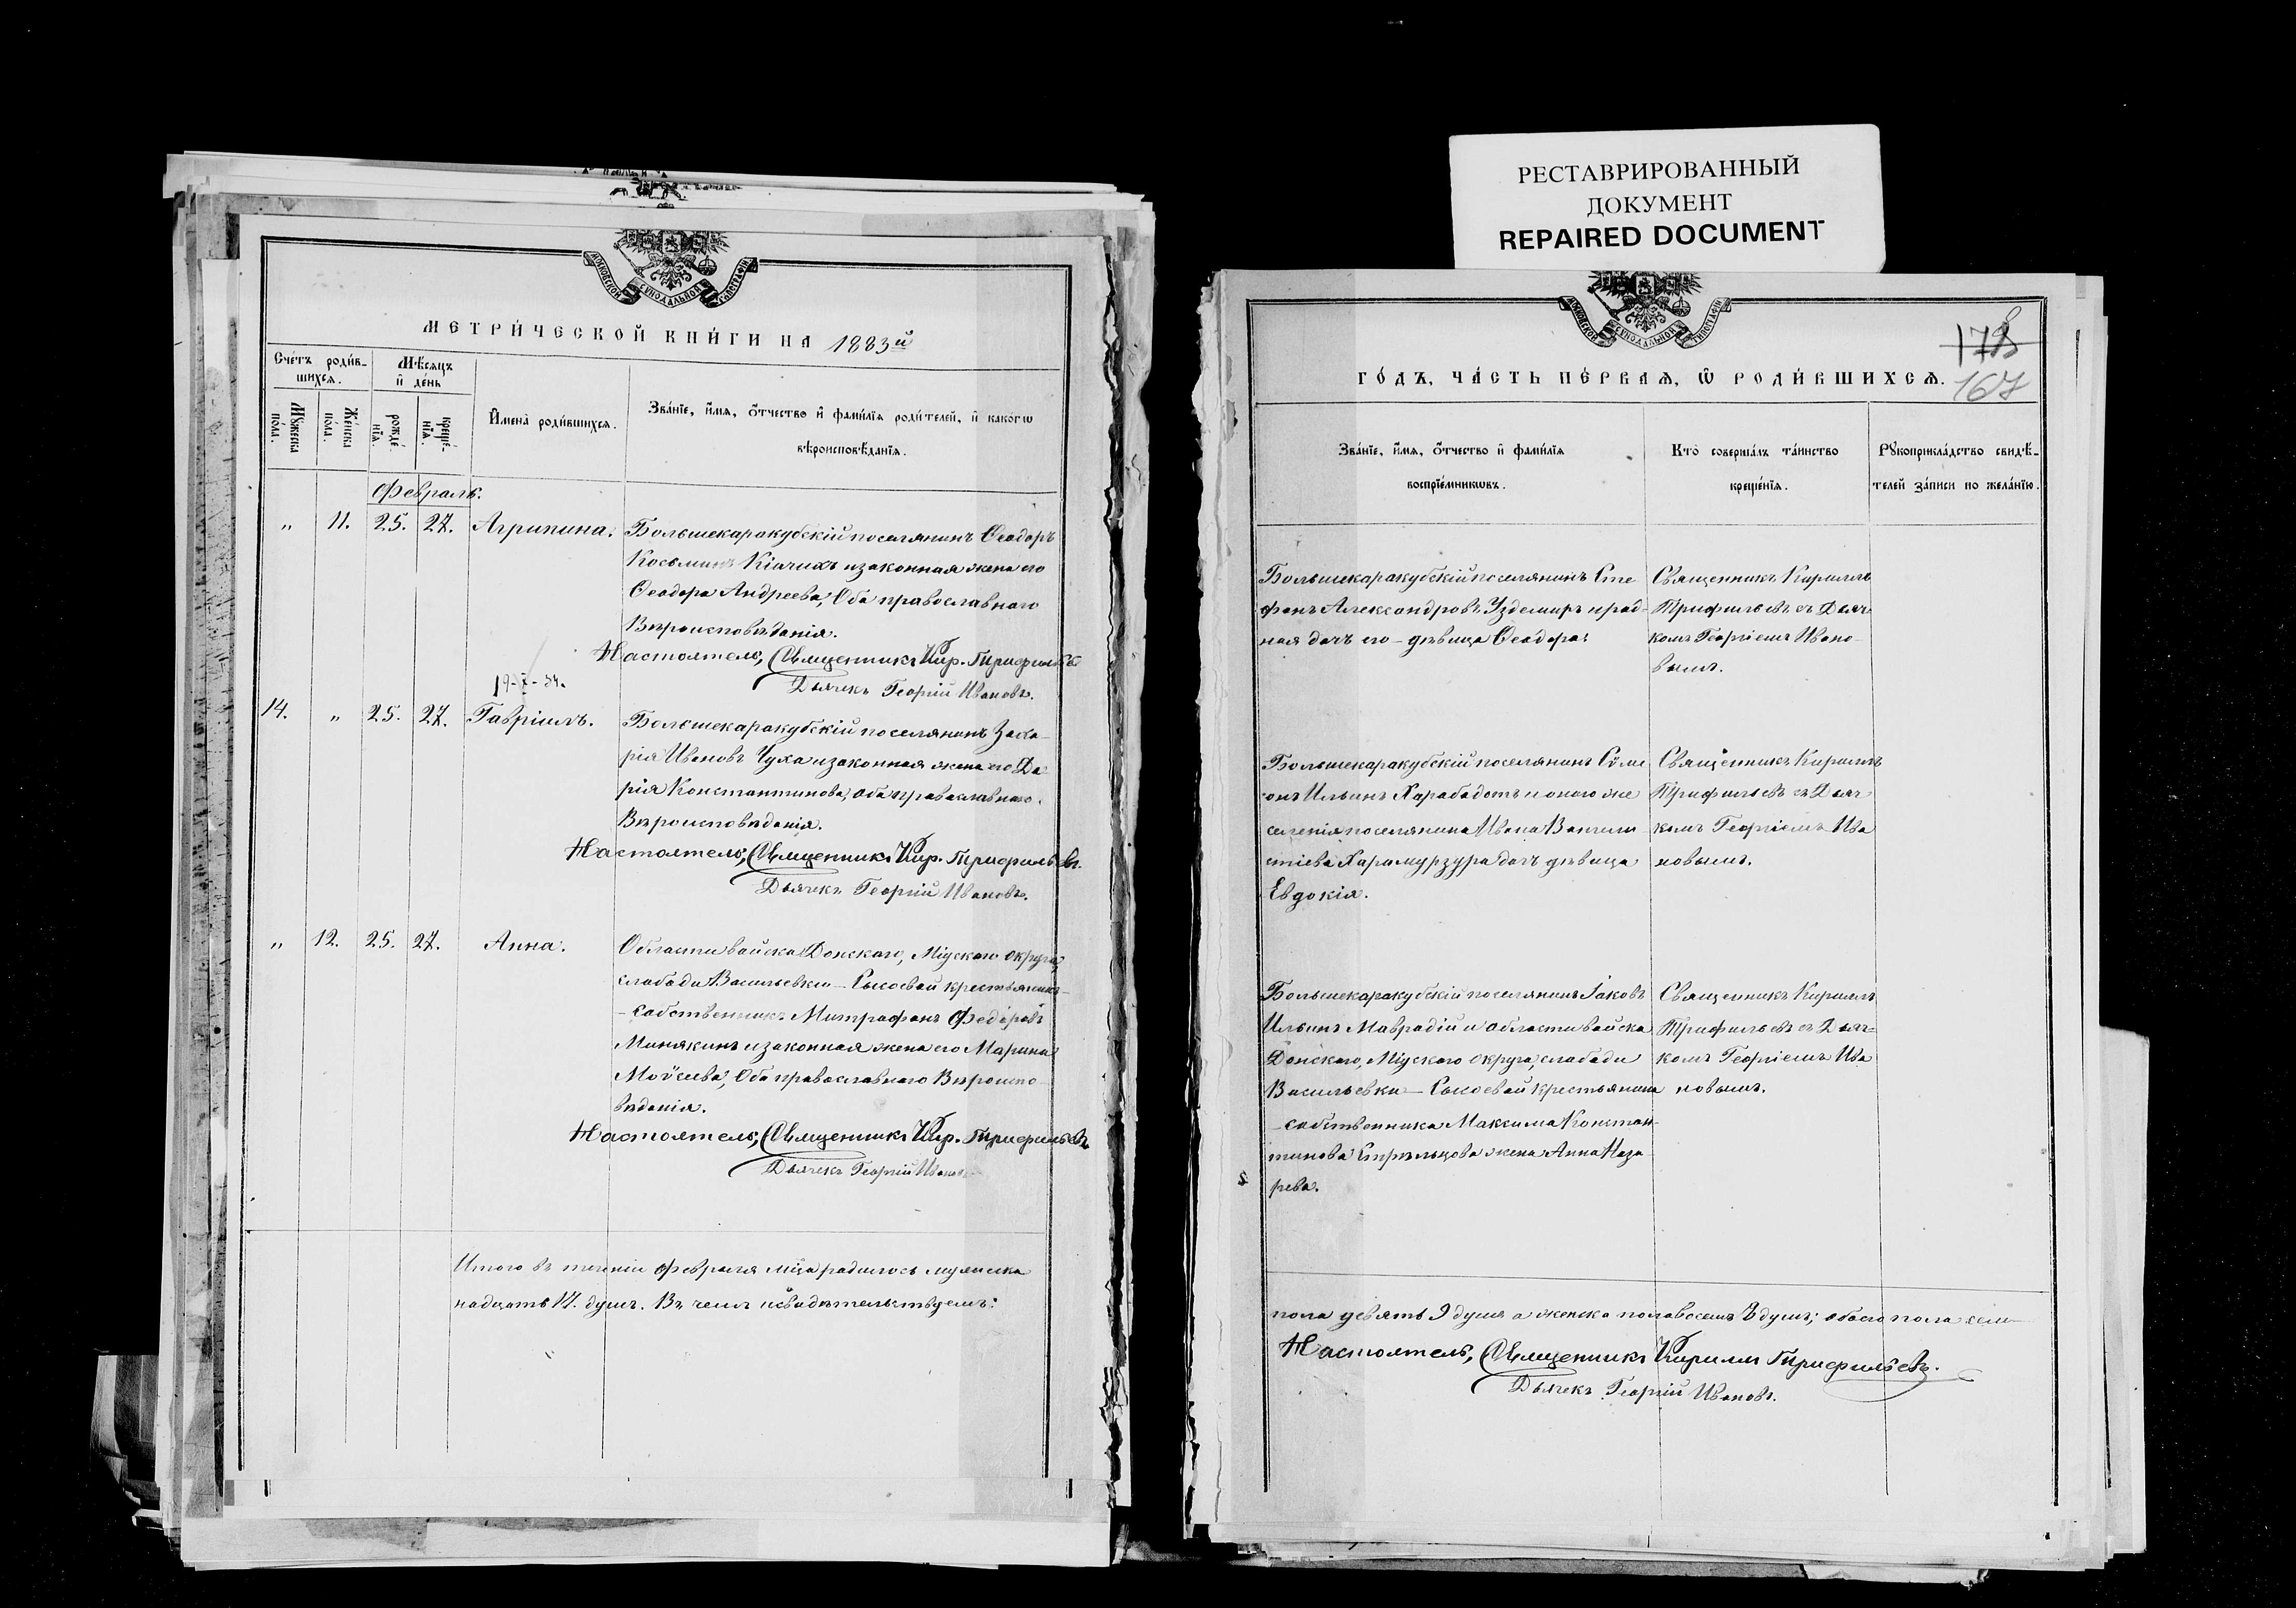 РЕСТАВРИРОВАННЫЙ
ДОКУМЕНТ
REPAIRED DOCUMENT
МОСКОВСКОЙ СѴНОДАЛЬНОЙ ТИПОГРАФІИ
МЕТРИ́ЧЕСКОЙ КНИ́ГИ НА 1883й
Сче́тъ роди́в-
шихсѧ.
Мѣ́сѧцъ
и҆ де́нь
Мꙋ́жеска
по́ла.
Же́нска
по́ла.
рожде́-
нїѧ.
креще́-
нїѧ.
И҆мена̀ роди́вшихсѧ.
Зва́нїе, и҆́мѧ, ѻ҆́тчество и҆ фами́лїѧ роди́телей, и҆ како́гѡ
вѣроисповѣ́данїѧ.
Февраль.
„ 11. 25. 27. Агрипина. Большекаракубскій поселянинъ Ѳеодоръ
Косьминъ Кіачихъ и законная жена его
Ѳеодора Андреева, Оба православнаго
Вѣроисповѣданія.
Настоятель, Священникъ Кир. Трифильевъ
Дьячекъ Георгій Ивановъ.
14. „ 25. 27. Гавріилъ. Большекаракубскій поселянинъ Заха-
рія Ивановъ Чуха и законная жена его Да-
рія Константинова, оба православнаго
Вѣроисповѣданія.
Настоятель, Священникъ Кир. Трифильевъ.
Дьячекъ Георгій Ивановъ.
„ 12. 25. 27. Анна. Области войска Донскаго, Міусскаго округа,
слободы Васильевки – Сысоевой крестьянинъ
– собственникъ Митрофанъ Федоровъ
Минякинъ и законная жена его Марина
Моѵсеева, Оба православнаго Вѣроиспо-
вѣданія.
Настоятель, Священникъ Кир. Трифильевъ
Дьячекъ Георгій Ивановъ
Итого въ теченіи февраля мѣца родилось мужеска
надцать 17. душъ. Въ чемъ и свидѣтельствуемъ:
МОСКОВСКОЙ СѴНОДАЛЬНОЙ ТИПОГРАФІИ
178
167
ГО́ДЪ, ЧА́СТЬ ПЕ́РВАѦ, Ѽ РОДИ́ВШИХСѦ.
Зва́нїе, и҆́мѧ, ѻ҆́тчество и҆ фами́лїѧ
воспрїе́мникѡвъ.
Кто̀ соверша́лъ та́инство
креще́нїѧ.
Рꙋкоприкла́дство свидѣ́-
телей за́писи по жела́нїю.
Большекаракубскій поселянинъ Сте-
фанъ Александровъ Уздемиръ и род-
ная дочь его – дѣвица Ѳеодора.
Священникъ Кириллъ
Трифильевъ съ Дьяч-
комъ Георгіемъ Ивано-
вымъ.
Большекаракубскій поселянинъ Сѵме-
онъ Ильинъ Харабадотъ и онаго же
селенія поселянина Ивана
Харамурзура дочь дѣвица
Евдокія.
Священникъ Кириллъ
Трифильевъ съ Дьяч-
комъ Георгіемъ Ива-
новымъ.
Большекаракубскій поселянинъ Іаковъ
Ильинъ Маврадій и области войска
Донскаго, Міусскаго округа, слободы
Васильевки – Сысоевой крестьянина
– собственника Максима Констан-
тинова Стрѣльцова жена Анна Наза-
рева.
Священникъ Кириллъ
Трифильевъ съ Дьяч-
комъ Георгіемъ Ива-
новымъ.
пола девять 9 душъ а женска пола восемь 8 душъ; обоего пола сем-
Настоятель, Священникъ Кириллъ Трифильевъ.
Дьячекъ Георгій Ивановъ.